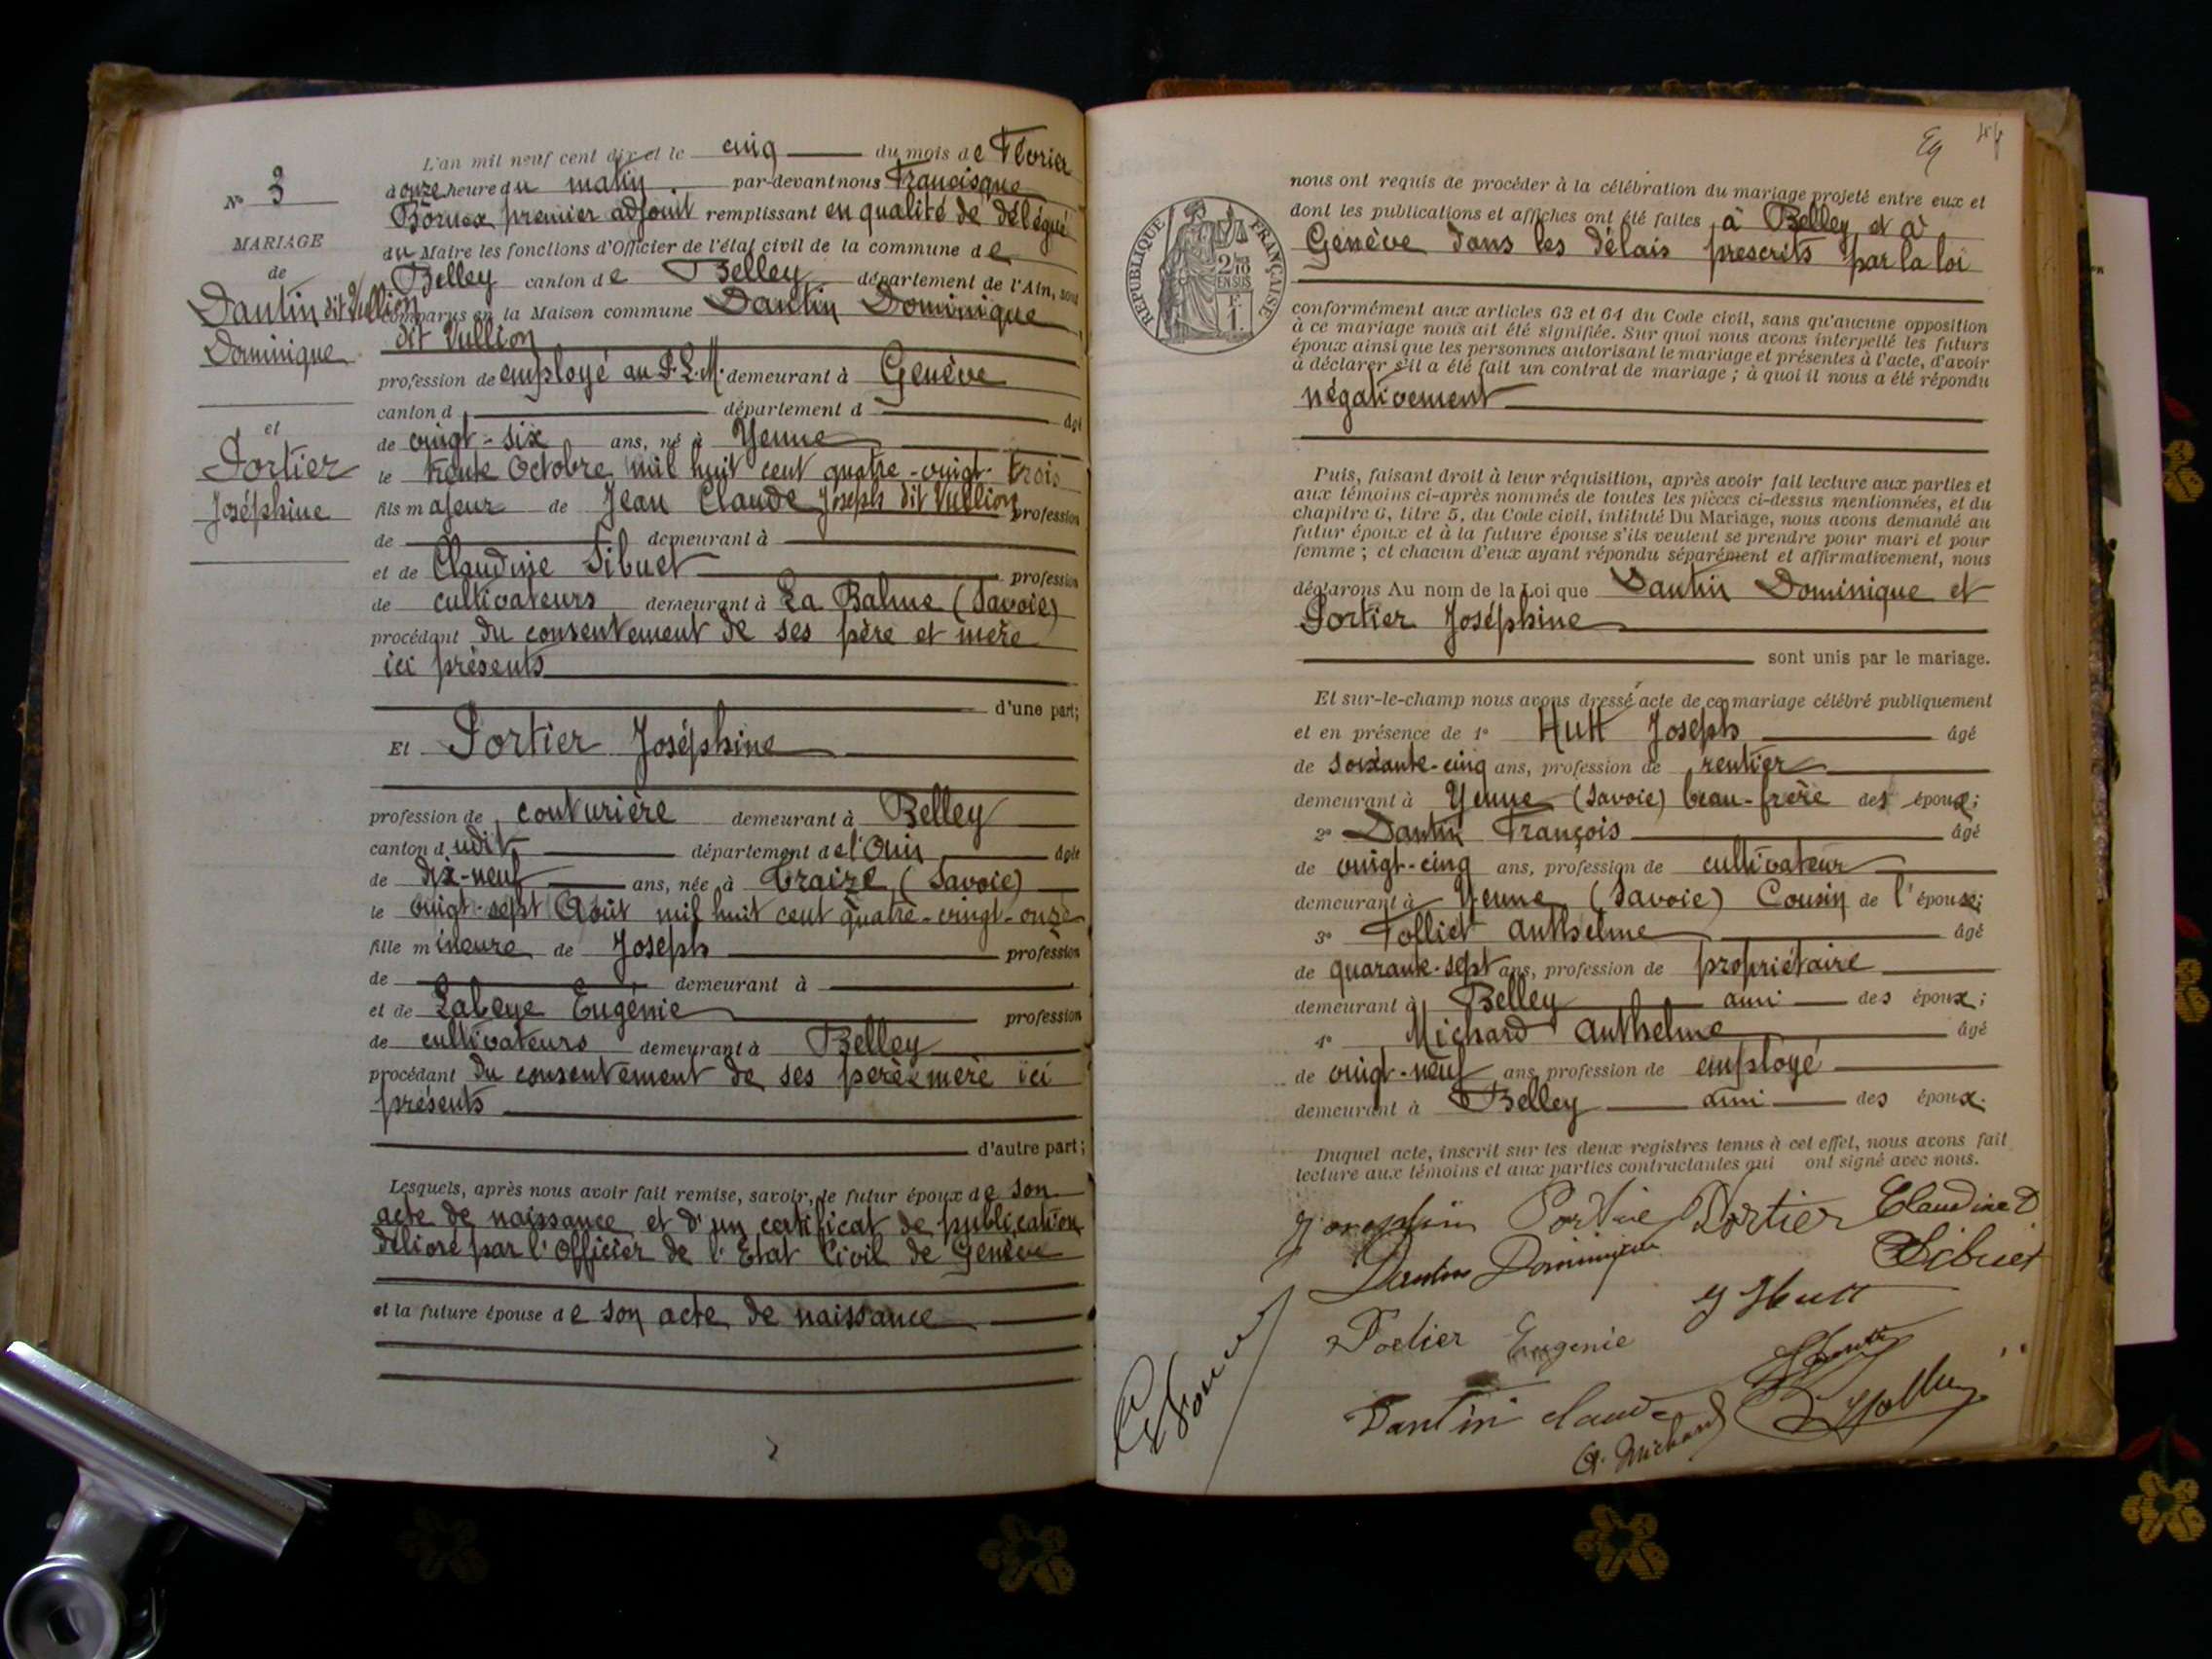 N° 3
MARIAGE
de
Dantin dit Vullion
Dominique
et
Portier
Joséphine
L'an mil neuf cent dix et le cinq du mois de Février
à onze heure du matin par-devant nous Francisque
premier adjoint remplissant en qualité de délégué
du Maire les fonctions d'Officier de l'état civil de la commune de
Belley canton de Belley département de l'Ain, sont
comparus en la Maison commune Dantin Dominique
dit Vullion
profession de employé au P.L.M. demeurant à Genève
canton d département d âgé
de vingt-six ans, né à Yenne
le trente Octobre mil huit cent quatre-vingt-trois
fils majeur de Jean Claude Joseph dit Vullion profession
de demeurant à
et de Claudine Sibuet profession
de cultivateurs demeurant à La Balme (Savoie)
procédant du consentement de ses père et mère
ici présents
d'une part;
Et Portier Joséphine
profession de couturière demeurant à Belley
canton dudit département de l'Ain âgée
de dix-neuf ans, née à Traize (Savoie)
le vingt-sept Août mil huit cent quatre-vingt-onze
fille mineure de Joseph profession
de demeurant à
et de Labeye Eugénie profession
de cultivateurs demeurant à Belley
procédant du consentement de ses père & mère ici
présents
d'autre part;
Lesquels, après nous avoir fait remise, savoir, le futur époux de son
acte de naissance et d'un certificat de publication
délivré par l'Officier de l'Etat Civil de Genève
et la future épouse de son acte de naissance
RÉPUBLIQUE FRANÇAISE
2/10
EN SUS
F.
1.
nous ont requis de procéder à la célébration du mariage projeté entre eux et
dont les publications et affiches ont été faites à Belley et à
Genève dans les délais prescrits par la loi
conformément aux articles 63 et 64 du Code civil, sans qu'aucune opposition
à ce mariage nous ait été signifiée. Sur quoi nous avons interpellé les futurs
époux ainsi que les personnes autorisant le mariage et présentes à l'acte, d'avoir
à déclarer s'il a été fait un contrat de mariage ; à quoi il nous a été répondu
négativement
Puis, faisant droit à leur réquisition, après avoir fait lecture aux parties et
aux témoins ci-après nommés de toutes les pièces ci-dessus mentionnées, et du
chapitre 6, titre 5, du Code civil, intitulé Du Mariage, nous avons demandé au
futur époux et à la future épouse s'ils veulent se prendre pour mari et pour
femme ; et chacun d'eux ayant répondu séparément et affirmativement, nous
déclarons Au nom de la Loi que Dantin Dominique et
Portier Joséphine
sont unis par le mariage.
Et sur-le-champ nous avons dressé acte de ce mariage célébré publiquement
et en présence de 1° Hutt Joseph âgé
de soixante-cinq ans, profession de rentier
demeurant à Yenne (Savoie) beau-frère des époux;
2° Dantin François âgé
de vingt-cinq ans, profession de cultivateur
demeurant à Yenne (Savoie) Cousin de l'épouse;
3° Folliet Anthelme âgé
de quarante-sept ans, profession de propriétaire
demeurant à Belley ami des époux;
4° Michard Anthelme âgé
de vingt-neuf ans, profession de employé
demeurant à Belley ami des époux.
Duquel acte, inscrit sur les deux registres tenus à cet effet, nous avons fait
lecture aux témoins et aux parties contractantes qui ont signé avec nous.
Portier Claudine D
Dantin Dominique Sibuet
Eugenie J Hutt
Dantin claude
A. Michard